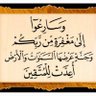 وَسَارِعُوا
إِلَىٰ مَغْفِرَةٍ مِنْ رَبِّكُمْ
وَجَنَّةٍ عَرْضُهَا السَّمَوَاتُ وَالْأَرْضُ
أُعِدَّتْ لِلْمُتَّقِينَ